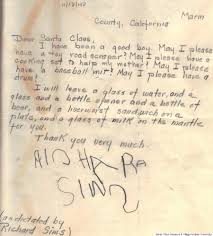 Marin
County, California
Dear Santa Claus,
I have been a good boy. May I please
have a toy road scraper? May I please have a
cooking set to help my mother? May I please
have a baseball mit? May I please have a
drum?
I will leave a glass of water, and a
glass and a bottle opener and a bottle of
beer, and a liverwurst sandwich on a
plate, and a glass of milk on the mantle
for you.
Thank you very much.
SIMS
(as dictated by
Richard Sims)